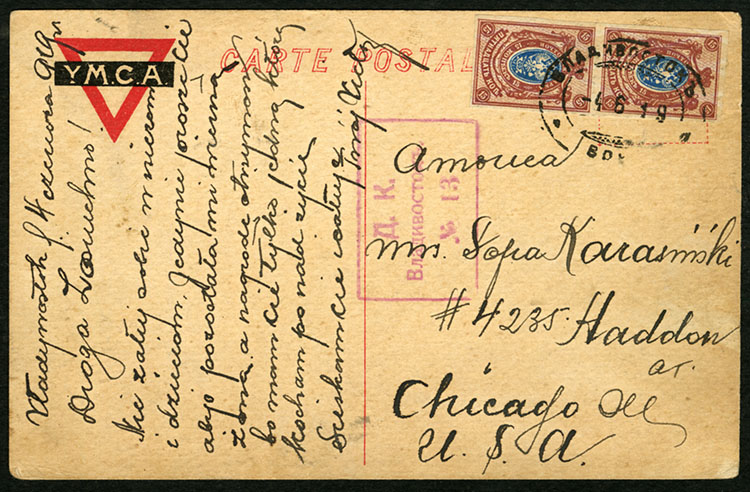 Y.M.C.A.
CARTE POSTAL
ВЛАДИВОСТОКЪ
-4 6 19
Д. К.
Владивосток
№ 13
America
Mrs. Zofia Karasiński
# 4235 Haddon
av.
Chicago Ill
U. S. A.
Władywostok d. 4 czerwca 919 r
Droga
Nie żałuj sobie w niczem
i dzieciom. Jedynie proszę cię
abyś pozostała mi wierną
żoną, a nagrodę otrzymam
bo mam cię tylko jedną którą
kocham ponad życie
Ściskam cię i całuję